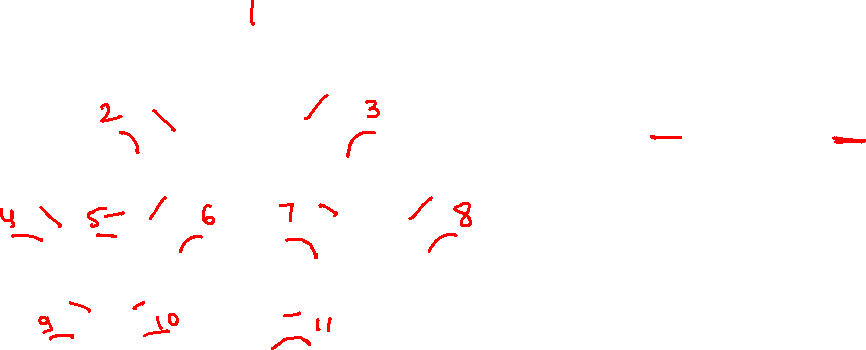 2 3
4 5 6 7 8
9 10 11